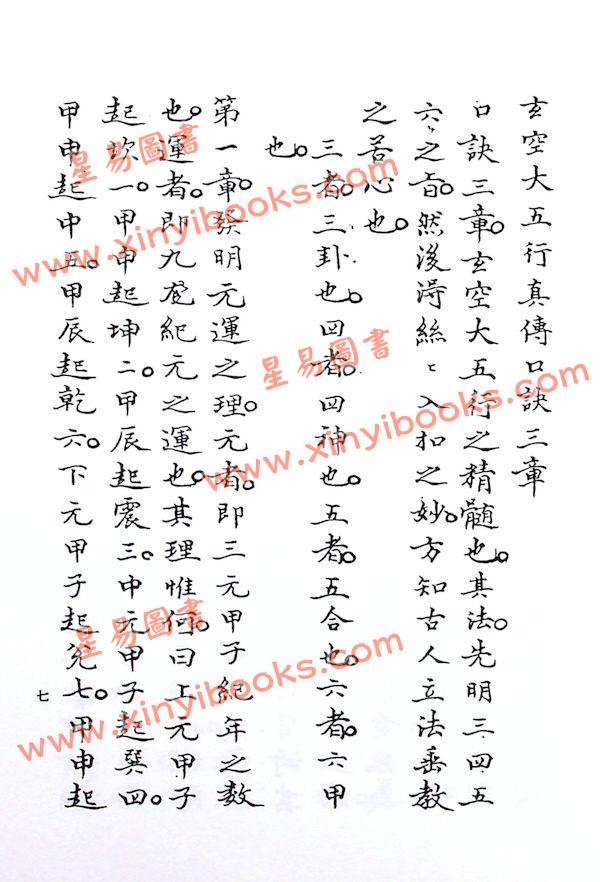 玄空大五行真傳口訣三章
口訣三章。玄空大五行之精髓也。其法。先明三四五
六之旨。然後淂絲〻入扣之妙。方知古人立法垂教
之苦心也。
三者。三卦也。四者。四神也。五者。五合也。六者。六甲
也。
第一章。發明元運之理。元者。即三元甲子紀年之数
也。運者。即九宮紀元之運也。其理惟何。曰上元甲子
起坎一。甲申起坤二。甲辰起震三。中元甲子起巽四。
甲申起中五。甲辰起乾六。下元甲子起兊七。甲申起
七
星易圖書
www.xinyibooks.com
星易圖書
www.xinyibooks.com
星易圖書
www.xinyibooks.com